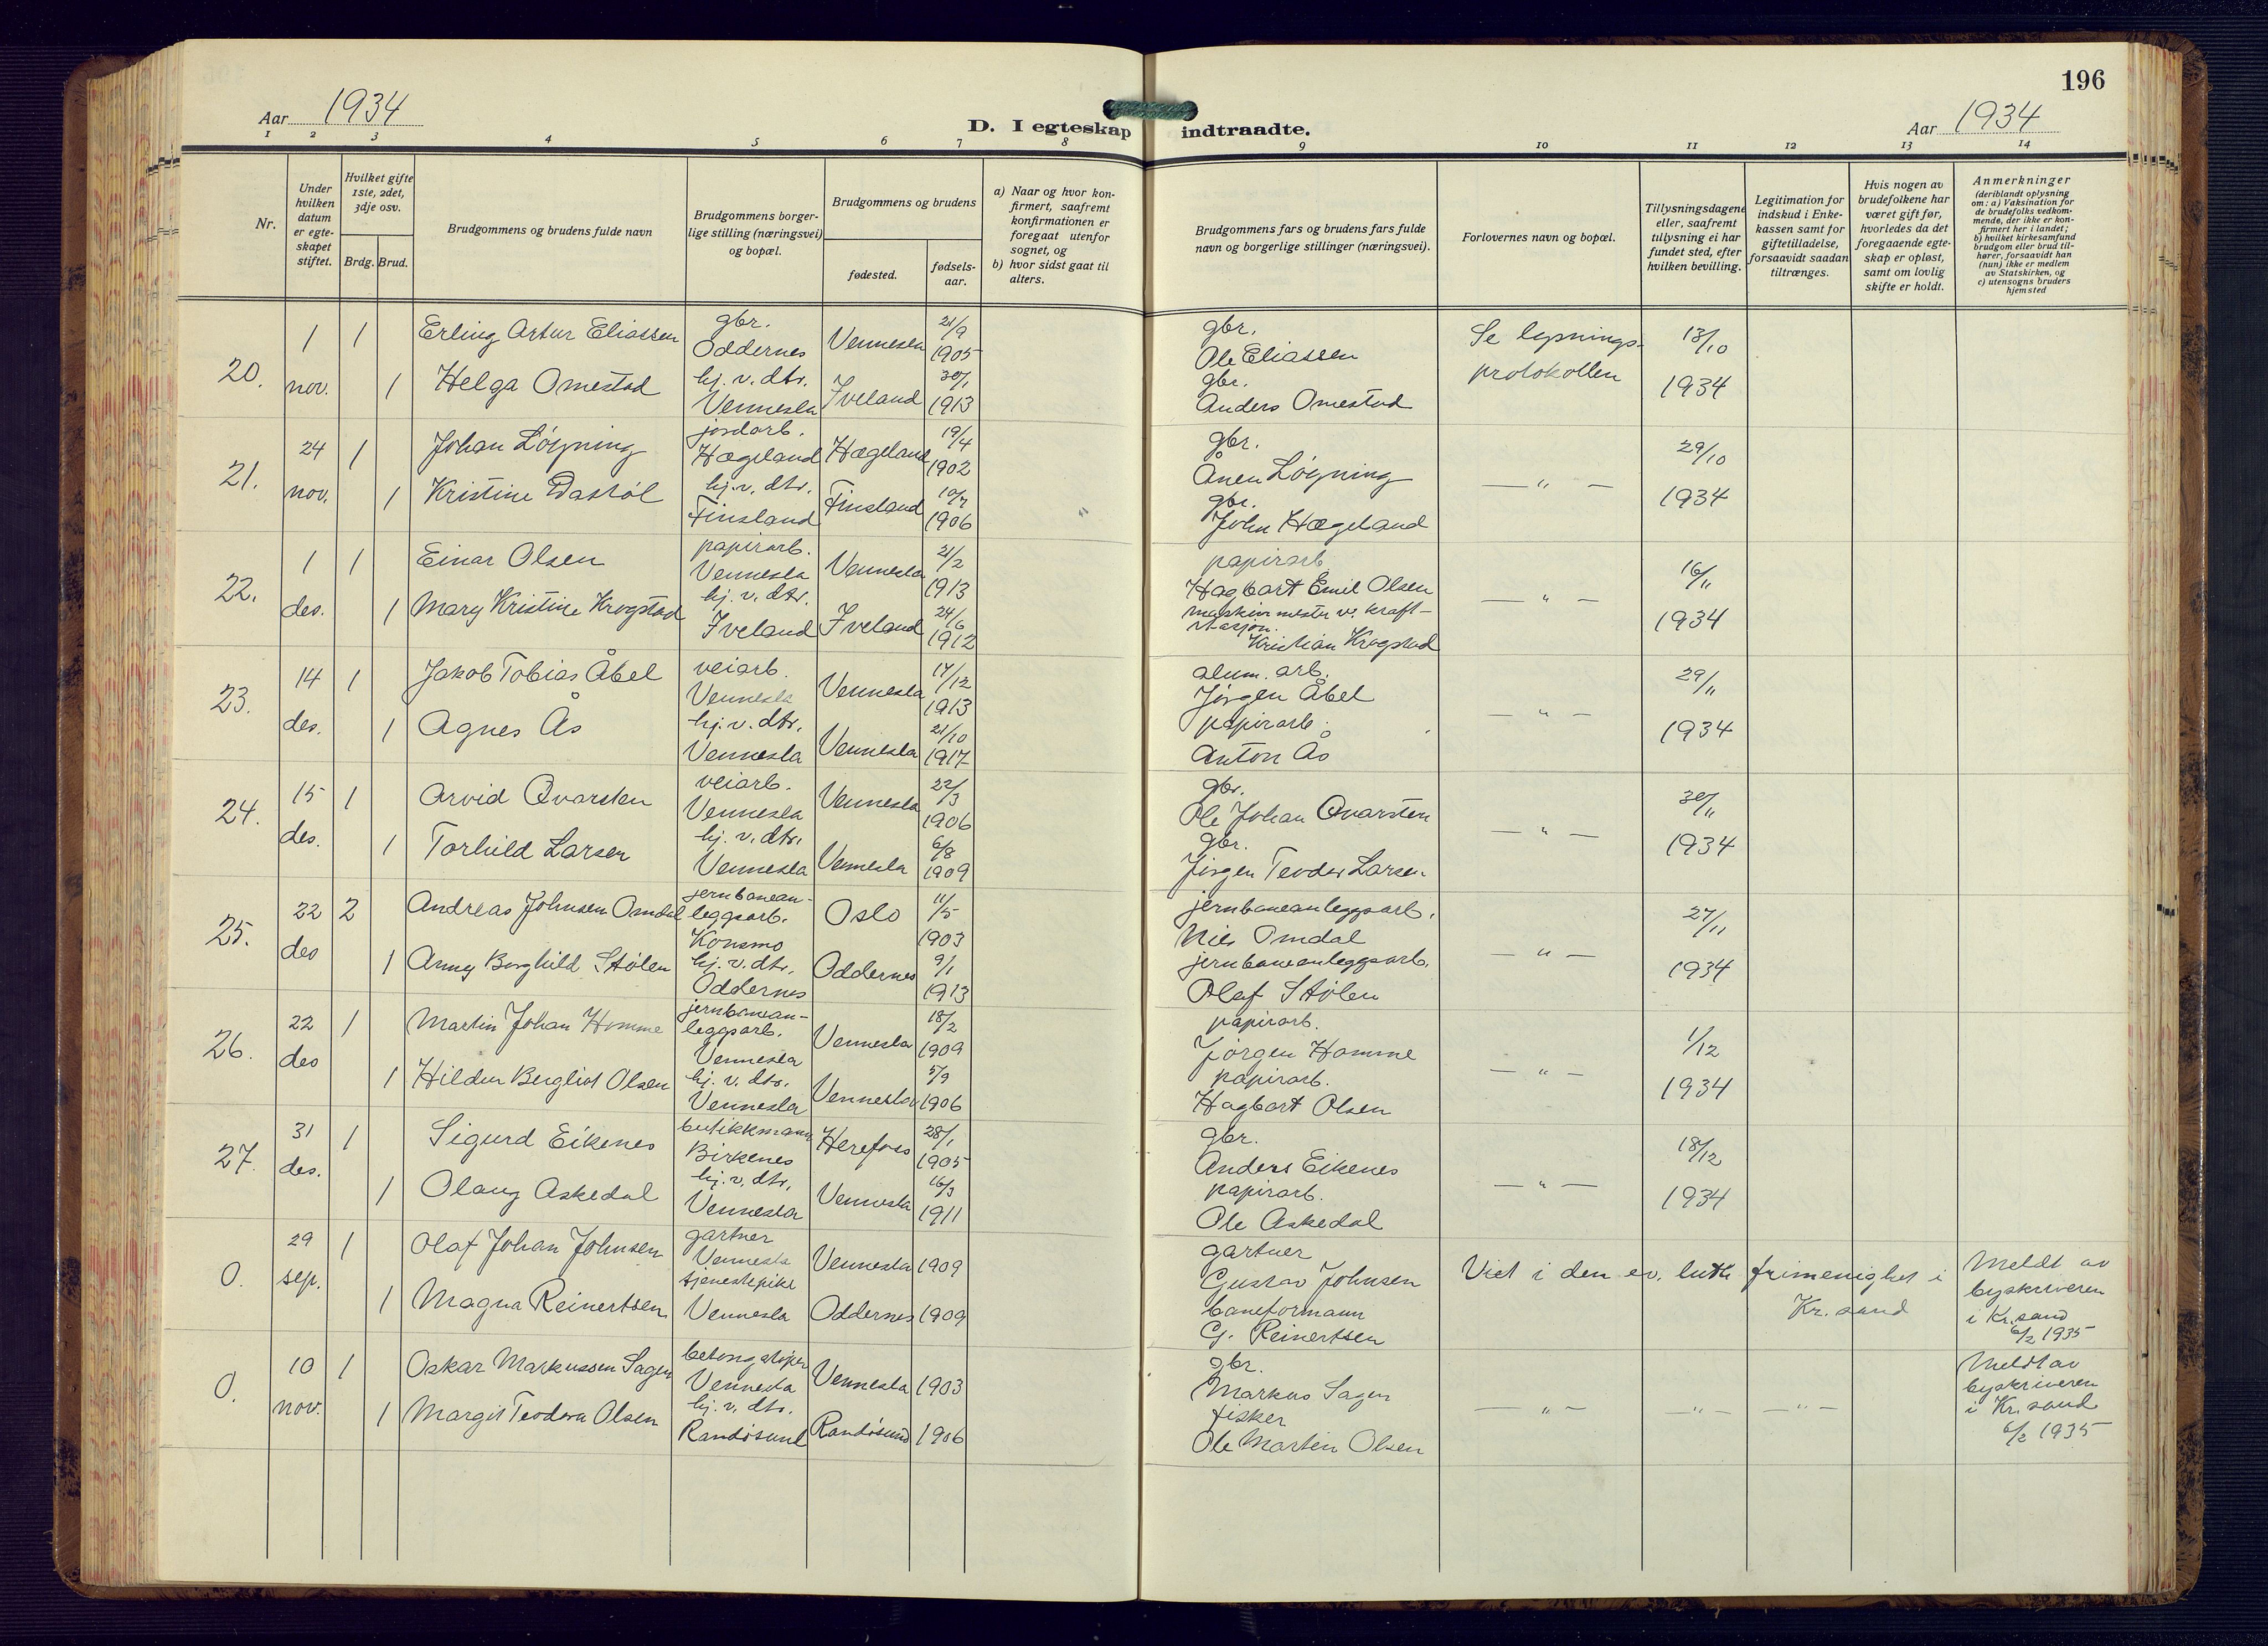 196
Aar 1934
D. I egteskap indtraadte.
Aar 1934
1 2 3 4 5 6 7 8 9 10 11 12 13 14
Nr.
Under hvilken datum er egteskapet stiftet.
Hvilket gifte 1ste, 2det, 3dje osv.
Brdg. Brud.
Brudgommens og brudens fulde navn
Brudgommens borgerlige stilling (næringsvei) og bopæl.
Brudgommens og brudens
fødested.
fødsels-aar.
a) Naar og hvor konfirmert, saafremt konfirmationen er foregaat utenfor sognet, og
b) hvor sidst gaat til alters.
Brudgommens fars og brudens fars fulde navn og borgerlige stillinger (næringsvei).
Forlovernes navn og bopæl.
Tillysningsdagene eller, saafremt tillysning ei har fundet sted, efter hvilken bevilling.
Legitimation for indskud i Enkekassen samt for giftetilladelse, forsaavidt saadan tiltrænges.
Hvis nogen av brudefolkene har været gift før, hvorledes da det foregaaende egteskap er opløst, samt om lovlig skifte er holdt.
Anmerkninger (deriblandt oplysning om: a) Vaksination for de brudefolks vedkommende, der ikke er konfirmert her i landet; b) hvilket kirkesamfund brudgom eller brud tilhører, forsaavidt han (hun) ikke er medlem av Statskirken, og c) utensogns bruders hjemsted
20. 1 nov. 1 Erling Artur Eliassen gbr. Oddernes Vennesla 21/9 1905 gbr. Ole Eliassen Se lysnings-protokollen 13/10 1934
1 Helga Omestad hj. v. dtr. Vennesla Iveland 30/1 1913 gbr. Anders Omestad
21. 24 nov. 1 Johan Løyning jordarb. Hægeland Hægeland 19/4 1902 gbr. Ånen Løyning — " — 29/10 1934
1 Kristine Dastøl hj. v. dtr. Finsland Finsland 10/7 1906 gbr. John Hægeland
22. 1 des. 1 Einar Olsen papirarb. Vennesla Vennesla 21/2 1913 papirarb. Hagbart Emil Olsen — " — 16/11 1934
1 Mary Kristine Krogstad hj. v. dtr. Iveland Iveland 24/6 1912 maskinmester v. kraft-stasjon. Kristian Krogstad
23. 14 des. 1 Jakob Tobias Åbel veiarb. Vennesla Vennesla 17/12 1913 alum. arb. Jørgen Åbel — " — 29/11 1934
1 Agnes Ås hj. v. dtr. Vennesla Vennesla 21/10 1917 papirarb. Anton Ås
24. 15 des. 1 Arvid Qvarsten veiarb. Vennesla Vennesla 22/3 1906 gbr. Ole Johan Qvarsten — " — 30/11 1934
1 Torhild Larsen hj. v. dtr. Vennesla Vennesla 6/8 1909 gbr. Jørgen Teodor Larsen
25. 22 des 2 Andreas Johnsen Omdal jernbanean-leggsarb. Konsmo Oslo 11/5 1903 jernbaneanleggsarb. Nils Omdal — " — 27/11 1934
1 Anny Borghild Stølen hj. v. dtr. Oddernes Oddernes 9/1 1913 jernbaneanleggsarb. Olaf Stølen
26. 22 des 1 Martin Johan Homme jernbanean-leggsarb. Vennesla Vennesla 18/2 1909 papirarb. Jørgen Homme — " — 1/12 1934
1 Hildur Bergliot Olsen hj. v. dtr. Vennesla Vennesla 5/9 1906 papirarb. Hagbart Olsen
27. 31 des. 1 Sigurd Eikenes butikkmann Birkenes Herefoss 28/1 1905 gbr. Anders Eikenes — " — 18/12 1934
1 Olaug Askedal hj. v. dtr. Vennesla Vennesla 16/3 1911 papirarb. Ole Askedal
0. 29 sep. 1 Olaf Johan Johnsen gartner Vennesla Vennesla 1909 gartner Gustav Johnsen Viet i den ev. luth frimenighet i Kr. sand Meldt av byskriveren i Kr. sand 6/2 1935
1 Magna Reinertsen tjenestepike Vennesla Oddernes 1909 baneformann G. Reinertsen
0. 10 nov. 1 Oskar Markussen Sagen betongstøper Vennesla Vennesla 1903 gbr. Markus Sagen — " — — " — — " — Meldt av byskriveren i Kr. sand 6/2 1935
1 Margit Teodora Olsen hj. v. dtr. Randøsund Randøsund 1906 fisker Ole Martin Olsen